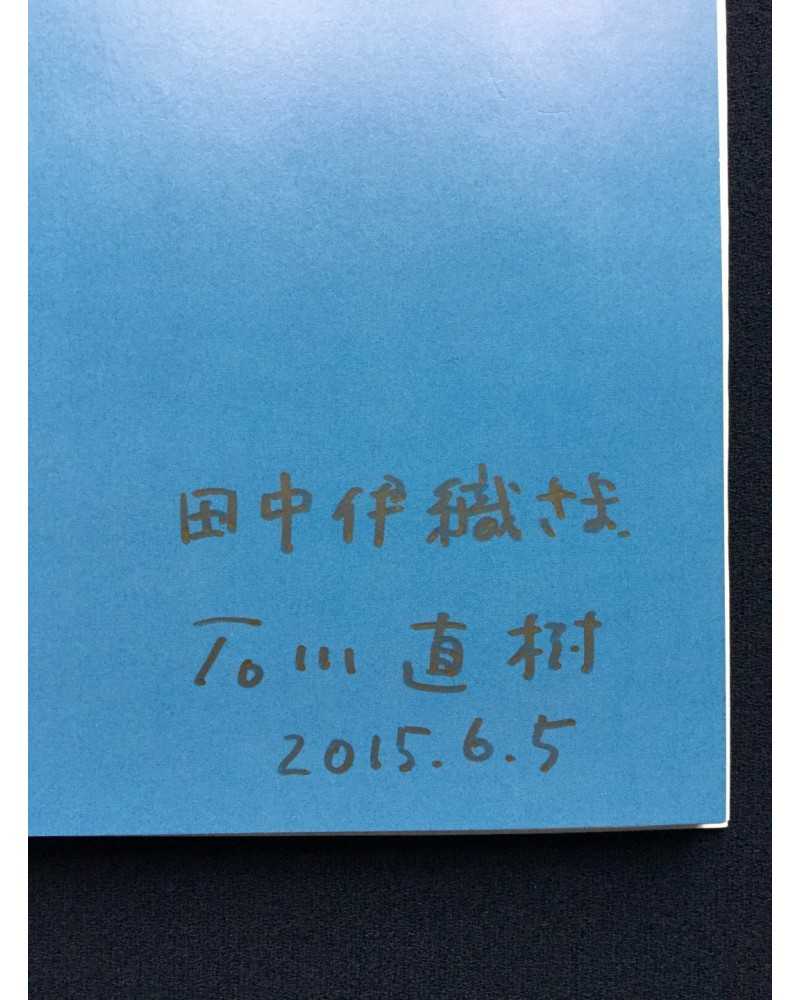 田中伊織さま
石川直樹
2015.6.5